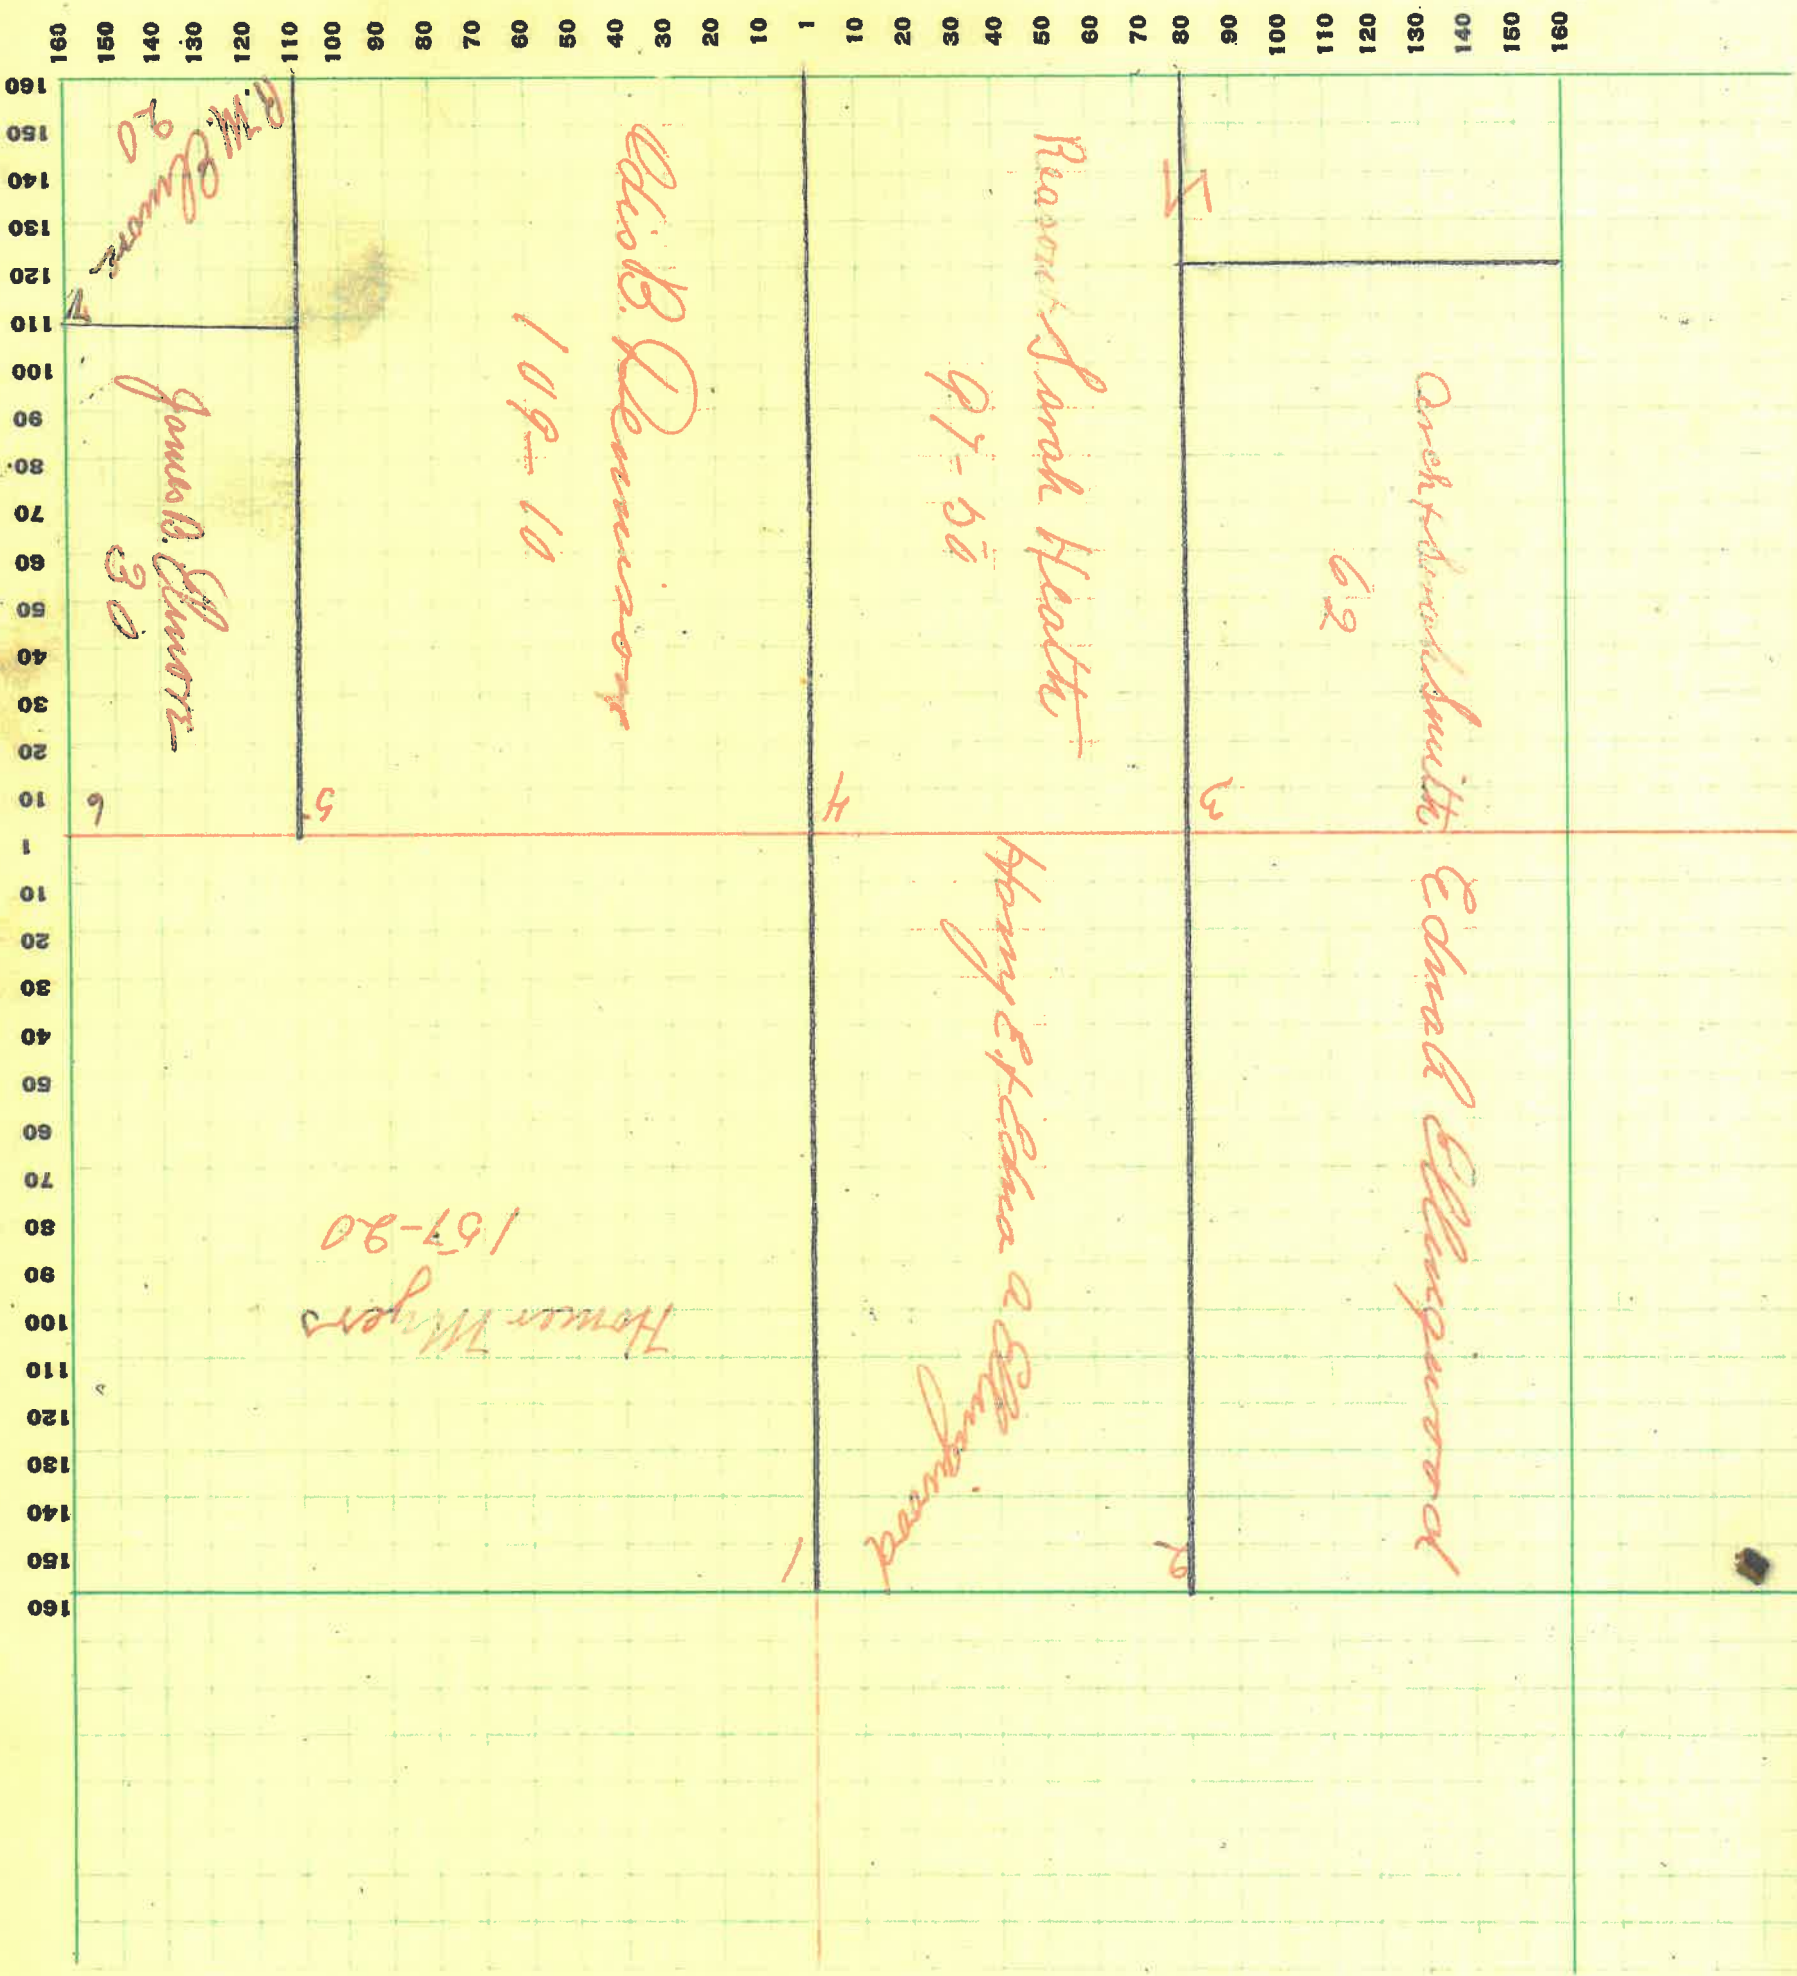 160 150 140 130 120 110 100 90 80 70 60 50 40 30 20 10 1 10 20 30 40 50 60 70 80 90 100 110 120 130 140 150 160
160 150 140 130 120 110 100 90 80 70 60 50 40 30 20 10 1 10 20 30 40 50 60 70 80 90 100 110 120 130 140 150 160
R.M. Elmore
20
7
James B. Elmore
30
6
B. Dennison
109-10
5
Sarah Heath
97-50
4
Smith
62
3
Homer Myers
157-20
1
Harry E + Edna a Ellingwood
2
Ellingwood